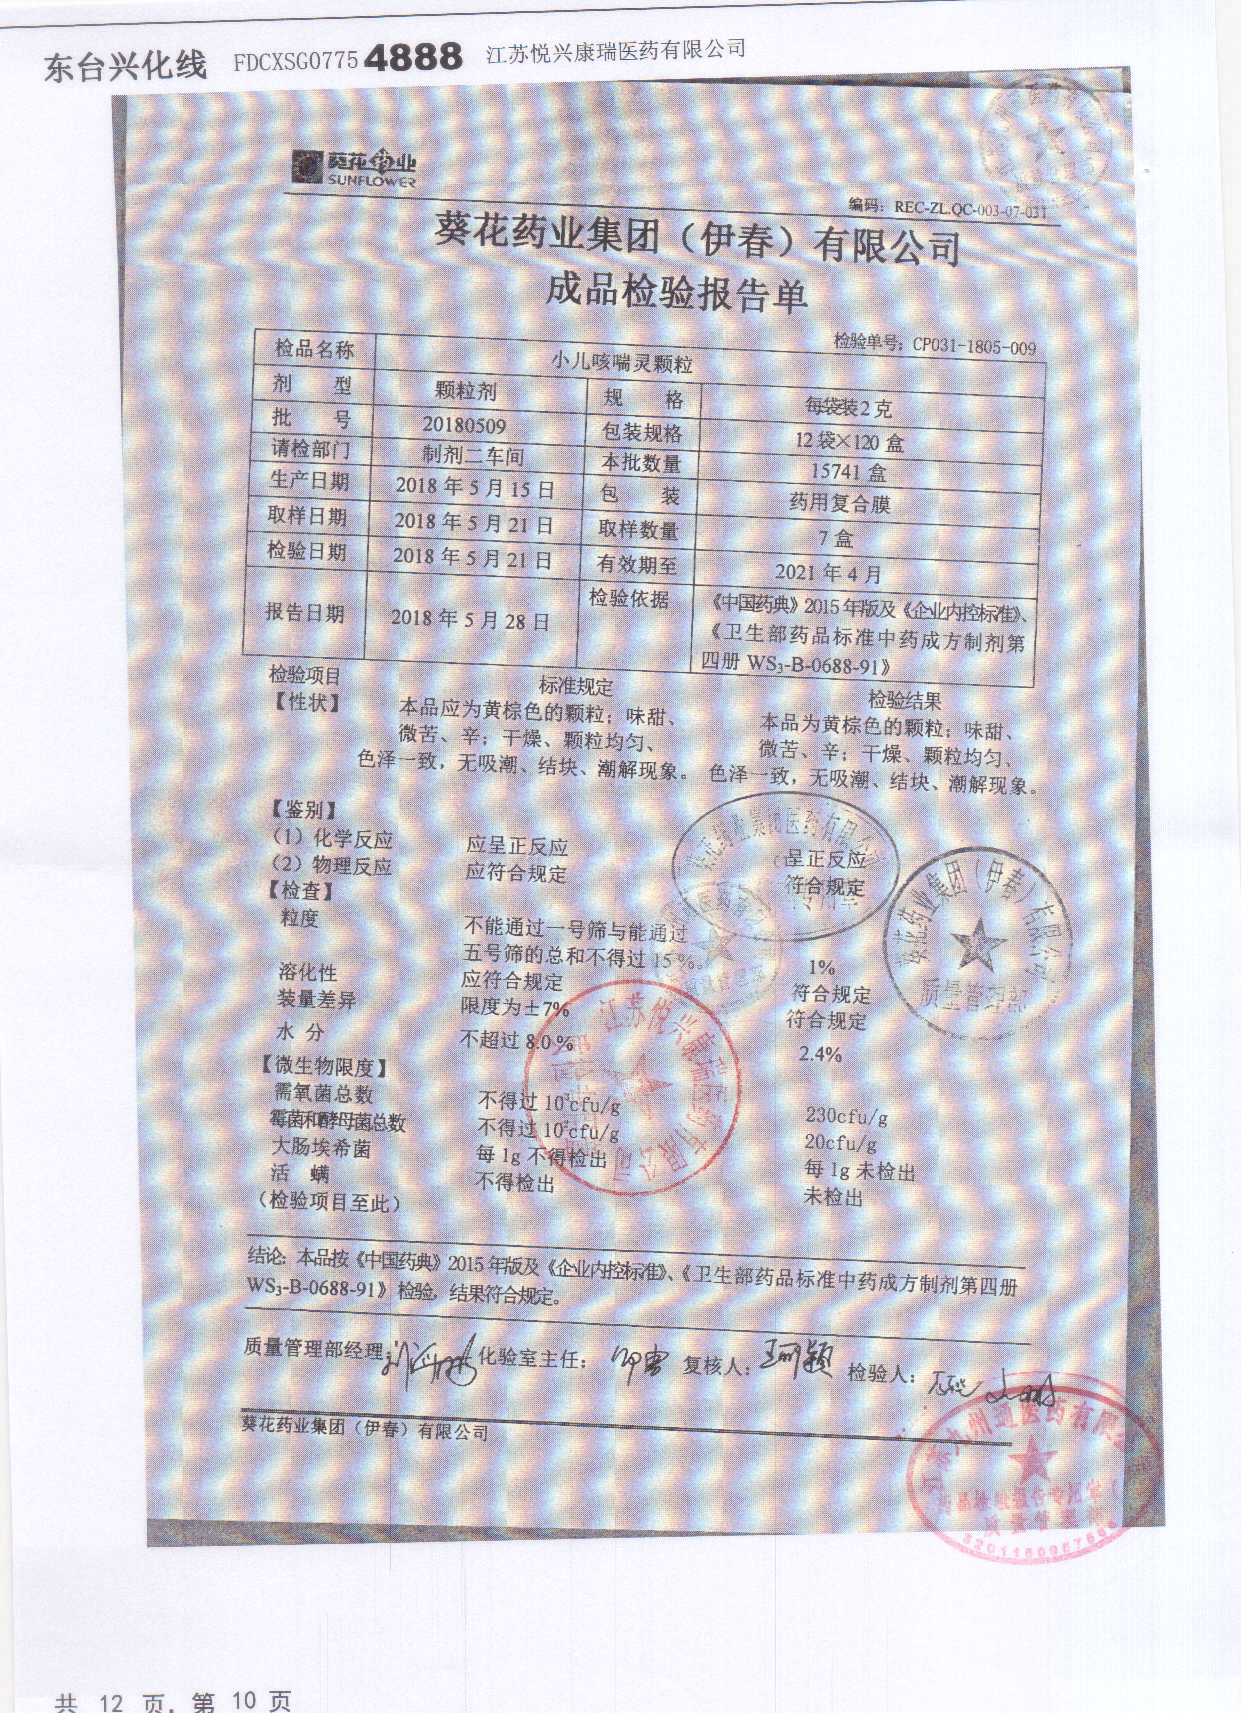 东台兴化线 FDCXSG07754888 江苏悦兴康瑞医药有限公司
葵花药业
SUNFLOWER
编码：REC-ZL.QC-003-07-031
葵花药业集团（伊春）有限公司
成品检验报告单
检验单号：CP031-1805-009
检品名称 小儿咳喘灵颗粒
剂 型 颗粒剂 规 格 每袋装2克
批 号 20180509 包装规格 12袋×120盒
请检部门 制剂二车间 本批数量 15741盒
生产日期 2018年5月15日 包 装 药用复合膜
取样日期 2018年5月21日 取样数量 7盒
检验日期 2018年5月21日 有效期至 2021年4月
报告日期 2018年5月28日 检验依据 《中国药典》2015年版及《企业内控标准》、
《卫生部药品标准中药成方制剂第
四册 WS3-B-0688-91》
检验项目 标准规定 检验结果
【性状】 本品应为黄棕色的颗粒；味甜、 本品为黄棕色的颗粒；味甜、
微苦、辛；干燥、颗粒均匀、 微苦、辛；干燥、颗粒均匀、
色泽一致，无吸潮、结块、潮解现象。 色泽一致，无吸潮、结块、潮解现象。
【鉴别】
（1）化学反应 应呈正反应 呈正反应
（2）物理反应 应符合规定 符合规定
【检查】
粒度 不能通过一号筛与能通过
五号筛的总和不得过15%。 1%
溶化性 应符合规定 符合规定
装量差异 限度为±7% 符合规定
水 分 不超过8.0% 2.4%
【微生物限度】
需氧菌总数 不得过10³cfu/g 230cfu/g
霉菌和酵母菌总数 不得过10²cfu/g 20cfu/g
大肠埃希菌 每1g不得检出 每1g未检出
活 螨 不得检出 未检出
（检验项目至此）
结论：本品按《中国药典》2015年版及《企业内控标准》、《卫生部药品标准中药成方制剂第四册
WS3-B-0688-91》检验，结果符合规定。
质量管理部经理： 化验室主任： 复核人： 检验人：
葵花药业集团（伊春）有限公司
葵花药业集团医药有限公司
葵花药业集团（伊春）有限公司
质量管理部
江苏悦兴康瑞医药有限公司
江苏九州通医药有限公司
质量管理部
共 12 页，第 10 页